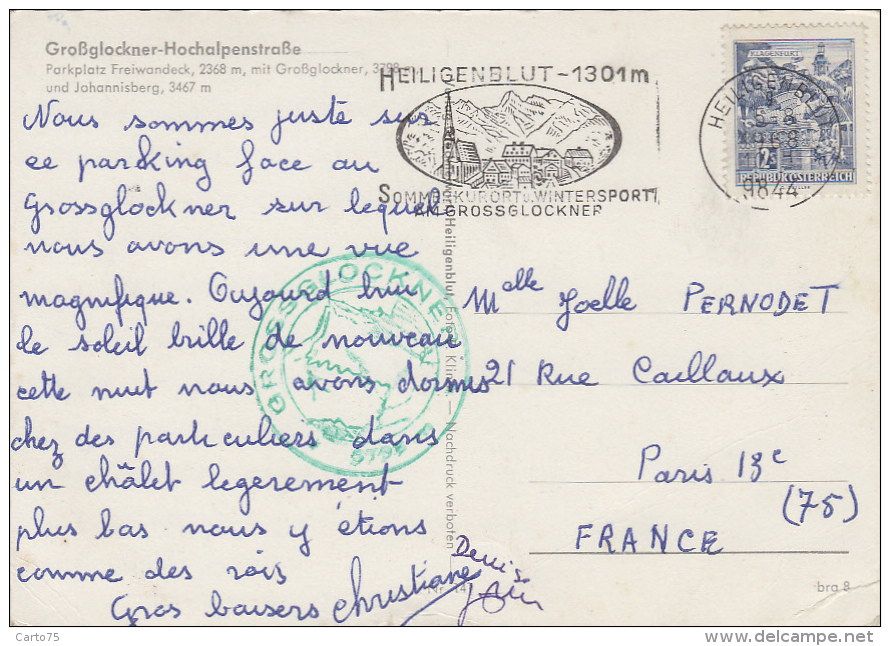 Großglockner-Hochalpenstraße
Parkplatz Freiwandeck, 2368 m, mit Großglockner, 3798 m
und Johannisberg, 3467 m
HEILIGENBLUT-1301m
SOMMERKURORT u. WINTERSPORT
AM GROSSGLOCKNER
KLAGENFURT
2S
REPUBLIK ÖSTERREICH
HEILIGENBLUT
9844
Nous sommes juste sur
ce parking face au
Grossglockner sur lequel
nous avons une vue
magnifique. Oujourd'hui
le soleil brille de nouveau
cette nuit nous avons dormis
chez des particuliers dans
un châlet legerement
plus bas nous y étions
comme des rois
Gros baisers Christiane
Denise
GROSSGLOCKNER
3798
Heiligenblut,
Nachdruck verboten
Melle Joelle PERNODET
21 Rue Caillaux
Paris 13e
(75)
FRANCE
bra 8
Carto75
www.delcampe.net